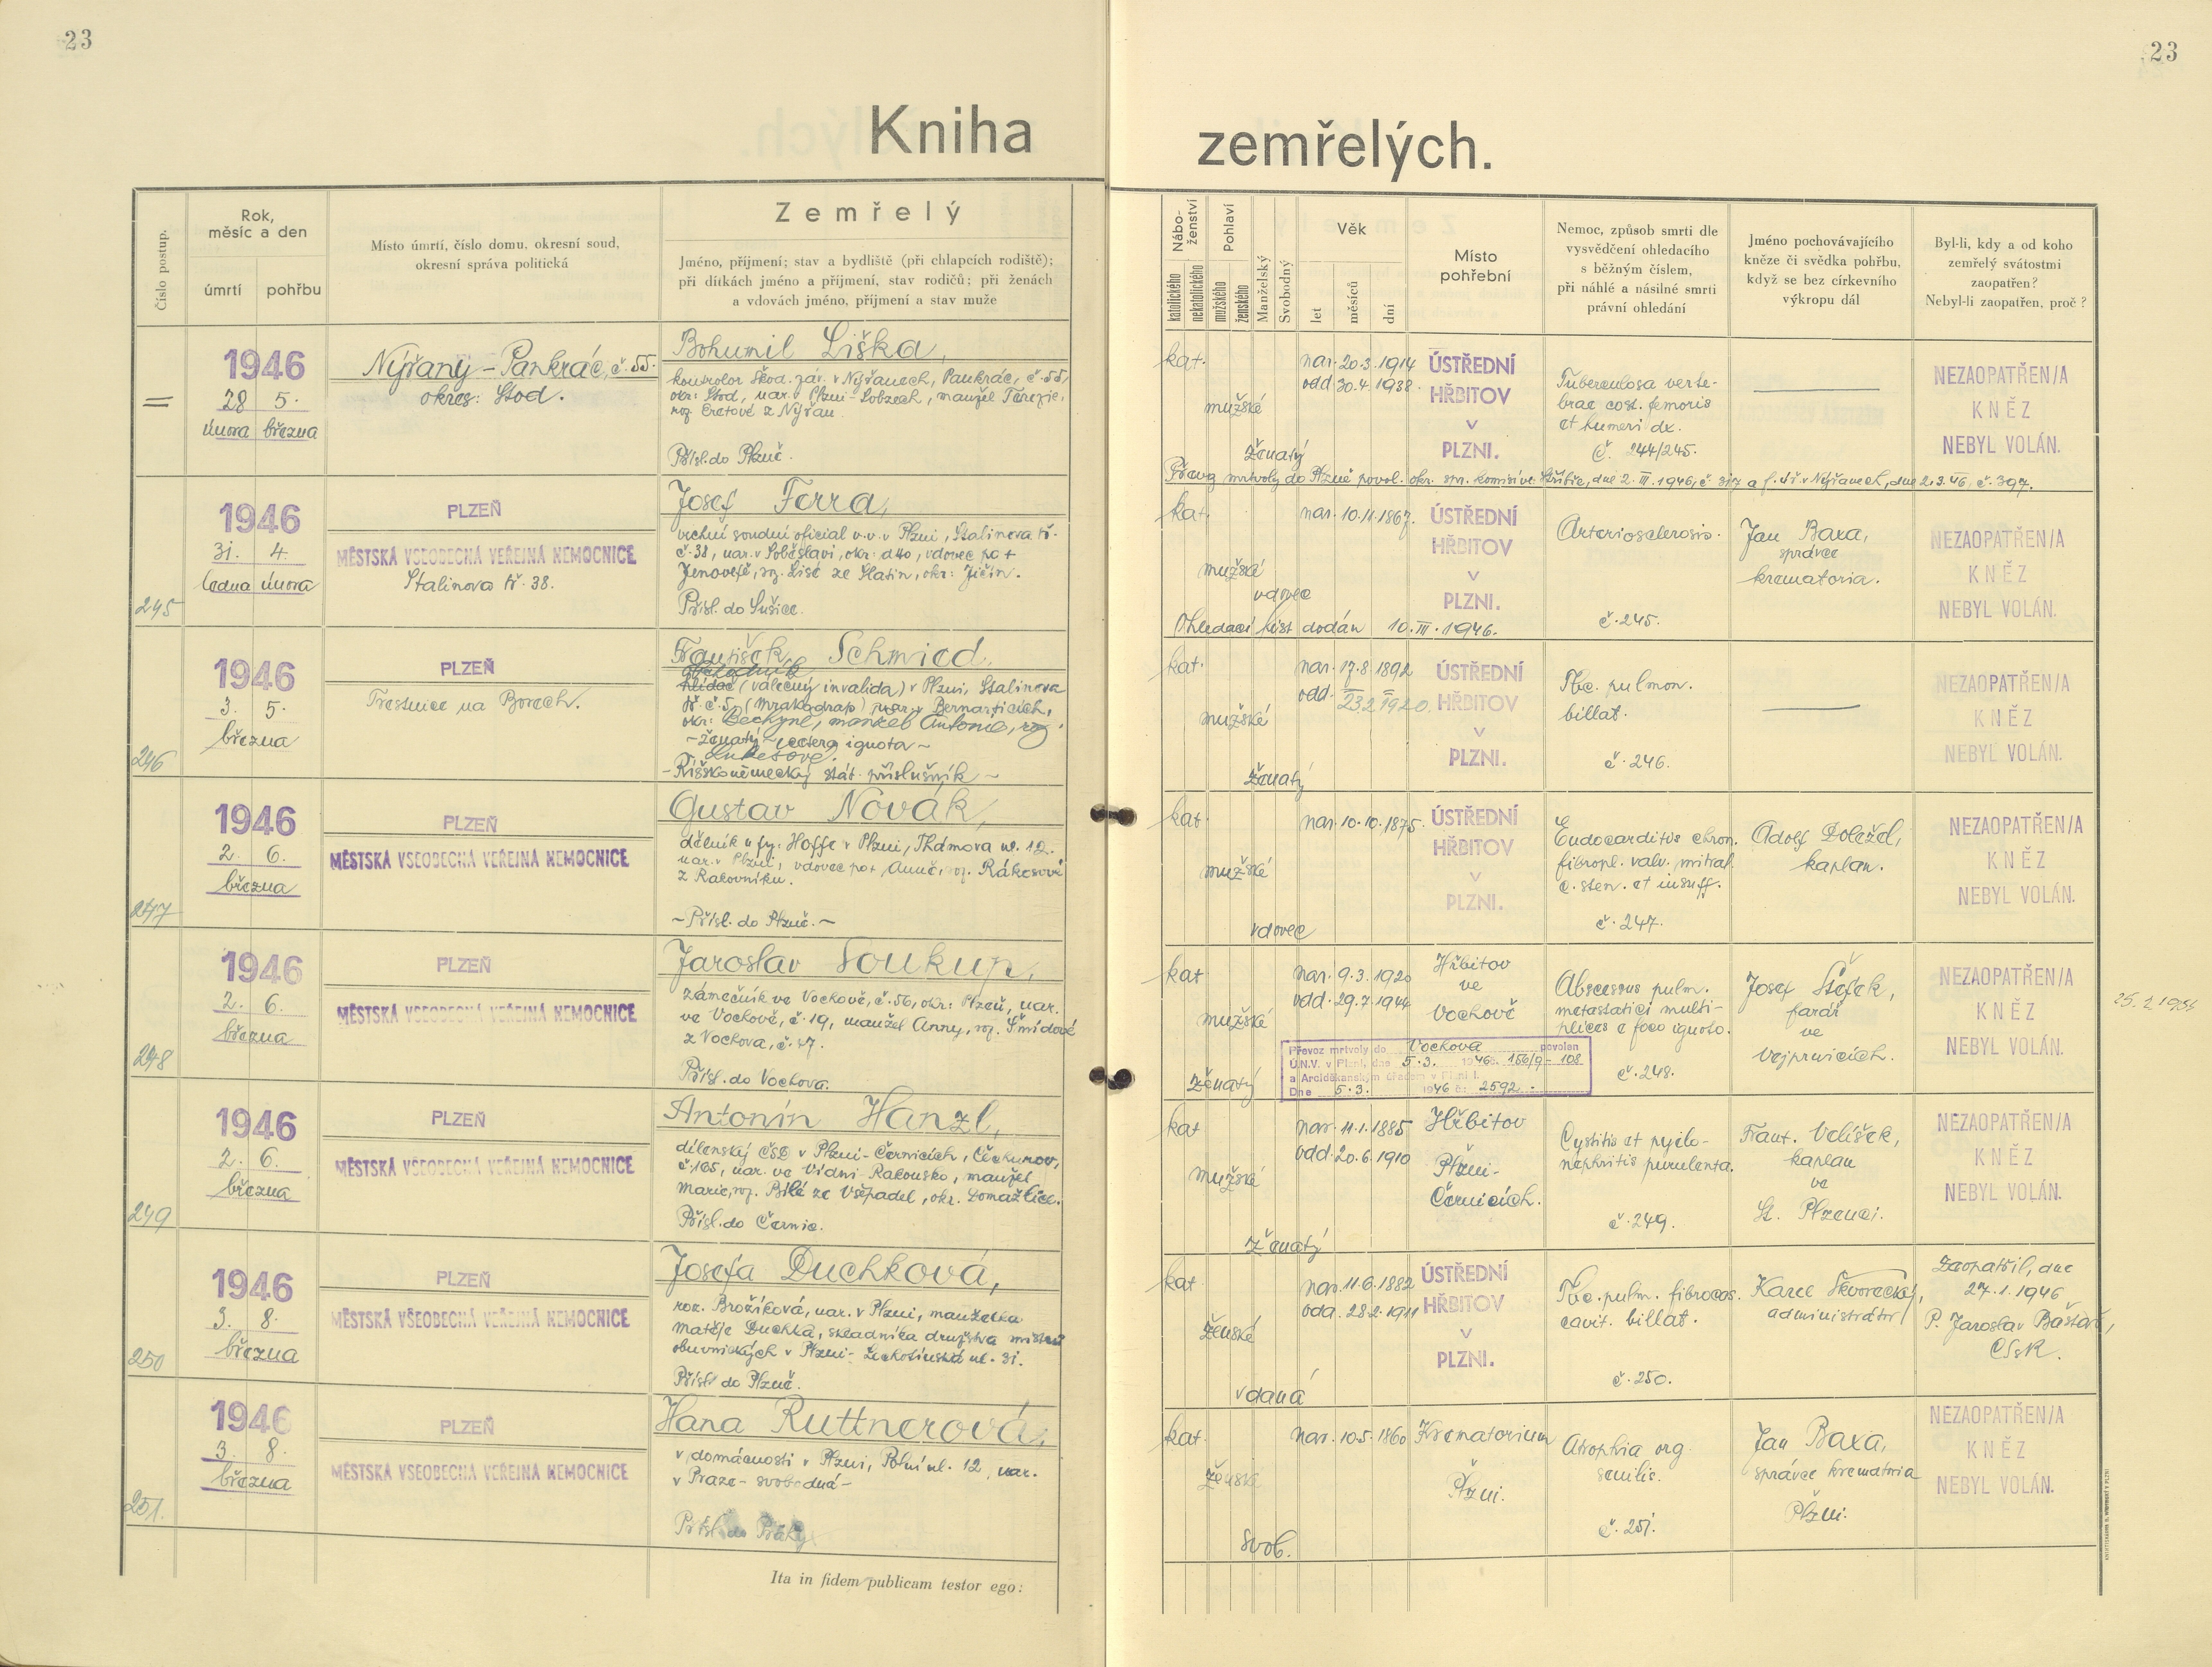 23
23
Kniha zemřelých.
Číslo postup.
Rok,
měsíc a den
úmrtí
pohřbu
Místo úmrtí, číslo domu, okresní soud,
okresní správa politická
Zemřelý
Jméno, příjmení; stav a bydliště (při chlapcích rodiště);
při dítkách jméno a příjmení, stav rodičů; při ženách
a vdovách jméno, příjmení a stav muže
Nábo-
ženství
katolického
nekatolického
Pohlaví
mužského
ženského
Manželský
Svobodný
Věk
let
měsíců
dní
Místo
pohřební
Nemoc, způsob smrti dle
vysvědčení ohledacího
s běžným číslem,
při náhlé a násilné smrti
právní ohledání
Jméno pochovávajícího
kněze či svědka pohřbu,
když se bez církevního
výkropu dál
Byl-li, kdy a od koho
zemřelý svátostmi
zaopatřen?
Nebyl-li zaopatřen, proč?
=
1946
28 5.
února března
Nýřany - Pankrác, č. 55.
okres: Stod.
Bohumil Liška,
kontrolor Škod. záv. v Nýřanech, Pankrác, č. 55,
okr: Stod, nar. v Plzni-Lobzech, manžel Terezie,
roz. Eretové z Nýřan.
Přísl. do Plzně.
kat.
mužské
ženatý
nar. 20.3.1914
odd. 30.4.1938.
ÚSTŘEDNÍ
HŘBITOV
V
PLZNI.
Tuberculosa verte-
brae cost. femoris
et humeri dx.
Č. 244/245.
NEZAOPATŘEN/A
KNĚZ
NEBYL VOLÁN.
Převoz mrtvoly do Plzně povol. okr. spr. komisí ve Stříbře, dne 2. III. 1946, č. 317 a f. úř. v Nýřanech, dne 2.3.46, č. 397.
245
1946
31. 4.
ledna února
PLZEŇ
MĚSTSKÁ VŠEOBECNÁ VEŘEJNÁ NEMOCNICE
Stalinova tř. 38.
Josef Forra,
vrchní soudní oficial v.v. v Plzni, Stalinova tř.
č. 38, nar. v Soběslavi, okr: dto, vdovec po +
Jenovefě, roz. Lisé ze Slatin, okr: Jičín.
Přísl. do Sušice.
kat.
mužské
vdovec
nar. 10.11.1867.
ÚSTŘEDNÍ
HŘBITOV
V
PLZNI.
Arteriosclerosis.
č. 245.
Jan Baxa,
správce
krematoria.
NEZAOPATŘEN/A
KNĚZ
NEBYL VOLÁN.
Ohledací list dodán 10. III. 1946.
246
1946
3. 5.
března
PLZEŇ
Trestnice na Borech.
František Schmied,
hlídač (válečný invalida) v Plzni, Stalinova
tř. č. 5, (Mrakodrap) nar. v Bernarticích,
okr: Bechyně, manžel Antonie, roz.
- ženatý - cetera ignota -
Lukešové.
- Říšskoněmecký stát. příslušník -
kat.
mužské
ženatý
nar. 17.8.1892
odd. 23.2.1920.
ÚSTŘEDNÍ
HŘBITOV
V
PLZNI.
Tbc. pulmon.
billat.
č. 246.
NEZAOPATŘEN/A
KNĚZ
NEBYL VOLÁN.
247
1946
2. 6.
března
PLZEŇ
MĚSTSKÁ VŠEOBECNÁ VEŘEJNÁ NEMOCNICE
Gustav Novák,
dělník u fy: Hoffe v Plzni, Thámova ul. 12.
nar. v Plzni, vdovec po + Anně, roz. Rákosové
z Rakovníku.
- Přísl. do Plzně. -
kat.
mužské
vdovec
nar. 10.10.1875.
ÚSTŘEDNÍ
HŘBITOV
V
PLZNI.
Endocarditis chron.
fibropl. valv. mitral.
c. sten. et insuff.
č. 247.
Adolf Doležel,
kaplan.
NEZAOPATŘEN/A
KNĚZ
NEBYL VOLÁN.
248
1946
2. 6.
března
PLZEŇ
MĚSTSKÁ VŠEOBECNÁ VEŘEJNÁ NEMOCNICE
Jaroslav Soukup,
zámečník ve Vochově, č. 56, okr: Plzeň, nar.
ve Vochově, č. 19, manžel Anny, roz. Šmídové
z Vochova, č. 47.
Přísl. do Vochova.
kat
mužské
ženatý
nar. 9.3.1920
odd. 29.7.1944
Hřbitov
ve
Vochově
Abscessus pulm.
metastatici multi-
plices e foco ignoto.
č. 248.
Josef Štefek,
farář
ve
Vejprnicích.
NEZAOPATŘEN/A
KNĚZ
NEBYL VOLÁN.
25.2.1954
Převoz mrtvoly do Vochova povolen
Ú.N.V. v Plzni, dne 5.3. 1946 č. 156/9-108
a Arciděkanským úřadem v Plzni I.
Dne 5.3. 1946 č. 2592.-
249
1946
2. 6.
března
PLZEŇ
MĚSTSKÁ VŠEOBECNÁ VEŘEJNÁ NEMOCNICE
Antonín Hanzl,
dílenský ČSD v Plzni-Černicích, Čechurov,
č. 165, nar. ve Vídni-Rakousko, manžel
Marie, roz. Bílé ze Všepadel, okr. Domažlice.
Přísl. do Černic.
kat
mužské
ženatý
nar. 11.1.1885
odd. 20.6.1910
Hřbitov
Plzni-
Černicích.
Cystitis et pyelo-
nephritis purulenta.
č. 249.
Frant. Velíšek,
kaplan
ve
St. Plzenci.
NEZAOPATŘEN/A
KNĚZ
NEBYL VOLÁN.
250
1946
3. 8.
března
PLZEŇ
MĚSTSKÁ VŠEOBECNÁ VEŘEJNÁ NEMOCNICE
Josefa Duchková,
roz. Brožíková, nar. v Plzni, manželka
Matěje Duchka, skladníka družstva mistrů
obuvnických v Plzni- ul. 31.
Přísl. do Plzně.
kat
ženské
vdaná
nar. 11.6.1882
odd. 28.2.1911
ÚSTŘEDNÍ
HŘBITOV
V
PLZNI.
Tbc. pulm. fibrocas.
cavit. billat.
č. 250.
Karel Škvorecký,
administrátor
Zaopatřil, dne
27.1.1946
P. Jaroslav Baštář,
CSsR.
251.
1946
3. 8.
března
PLZEŇ
MĚSTSKÁ VŠEOBECNÁ VEŘEJNÁ NEMOCNICE
Hana Ruttnerová,
v domácnosti v Plzni, Polní ul. 12, nar.
v Praze - svobodná -
Přísl. do Prahy
kat.
ženské
svob.
nar. 10.5.1860
Krematorium
Plzni.
Atrophia org.
senilis.
č. 251.
Jan Baxa,
správce krematoria
Plzni.
NEZAOPATŘEN/A
KNĚZ
NEBYL VOLÁN.
Ita in fidem publicam testor ego: